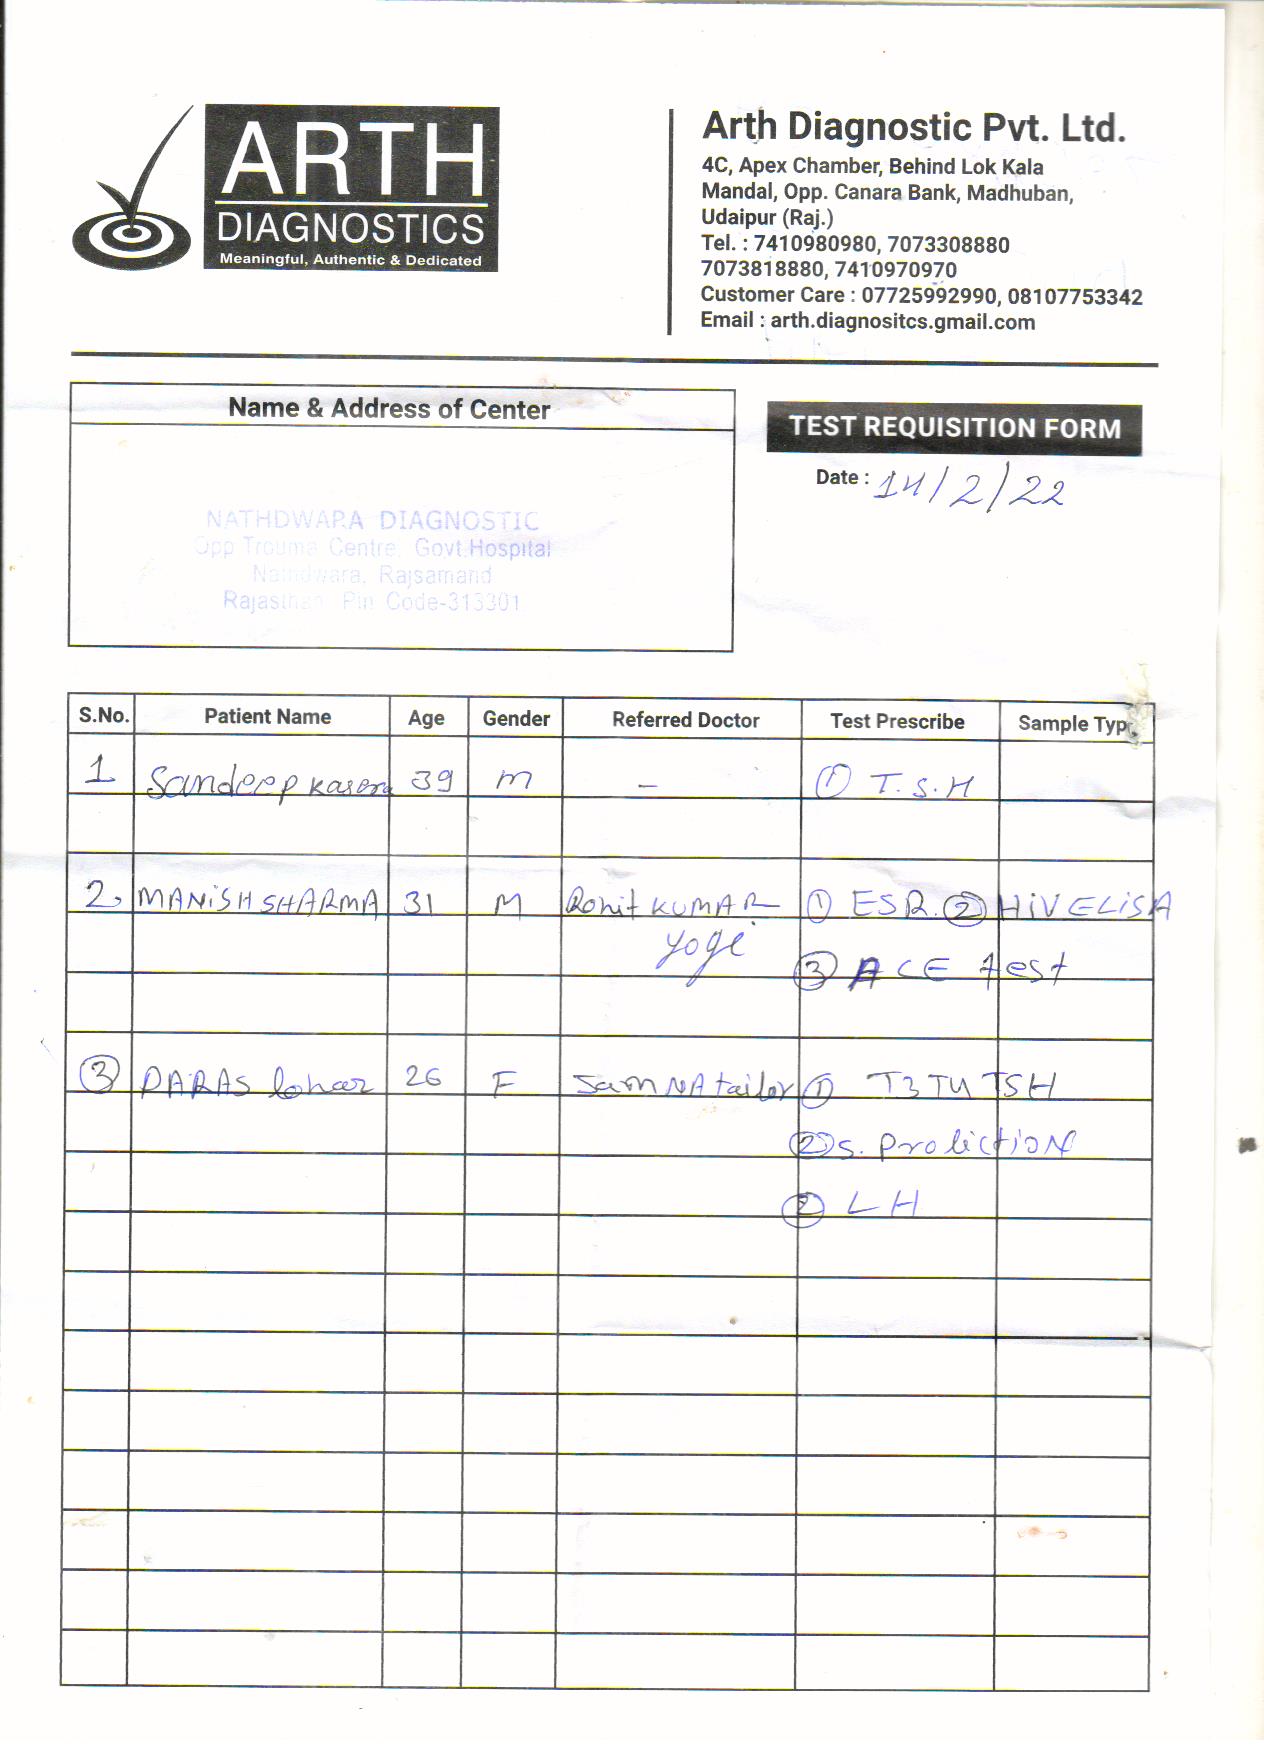 ARTH
DIAGNOSTICS
Meaningful, Authentic & Dedicated
Arth Diagnostic Pvt. Ltd.
4C, Apex Chamber, Behind Lok Kala
Mandal, Opp. Canara Bank, Madhuban,
Udaipur (Raj.)
Tel. : 7410980980, 7073308880
7073818880, 7410970970
Customer Care : 07725992990, 08107753342
Email : arth.diagnositcs.gmail.com
Name & Address of Center
TEST REQUISITION FORM
Date : 14/2/22
NATHDWARA DIAGNOSTIC
Opp Trouma Centre, Govt.Hospital
Nathdwara, Rajsamand
Rajasthan Pin Code-313301
S.No. Patient Name Age Gender Referred Doctor Test Prescribe Sample Typ
1 Sandeep Kasera 39 M - ① T.S.H
2, MANiSH SHARMA 31 M Rohit KUMAR ① ESR. ② HiV ELiSA
yogi ③ ACE test
③ PARAS lohar 26 F Sam NA tailor ① T3 T4 TSH
② S. Proliction
② LH